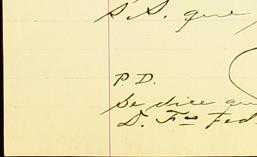 S.S. que
P.D.
Se dice qu
D. Fco Fed